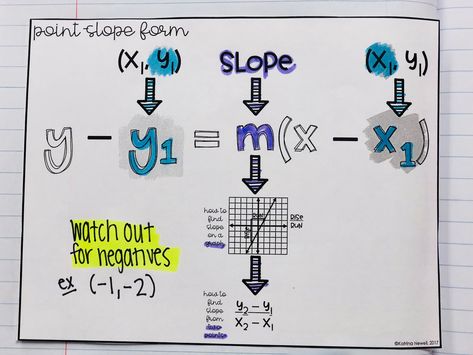 point slope form
(x₁, y₁) SLOPE (x₁, y₁)
y − y₁ = m(x − x₁)
how to
find
slope
on a
graph
RISE
RISE
RUN
RUN
watch out
for negatives
ex (-1, -2)
how to
find
slope
from
two
points
y₂ − y₁
x₂ − x₁
©Katrina Newell, 2017